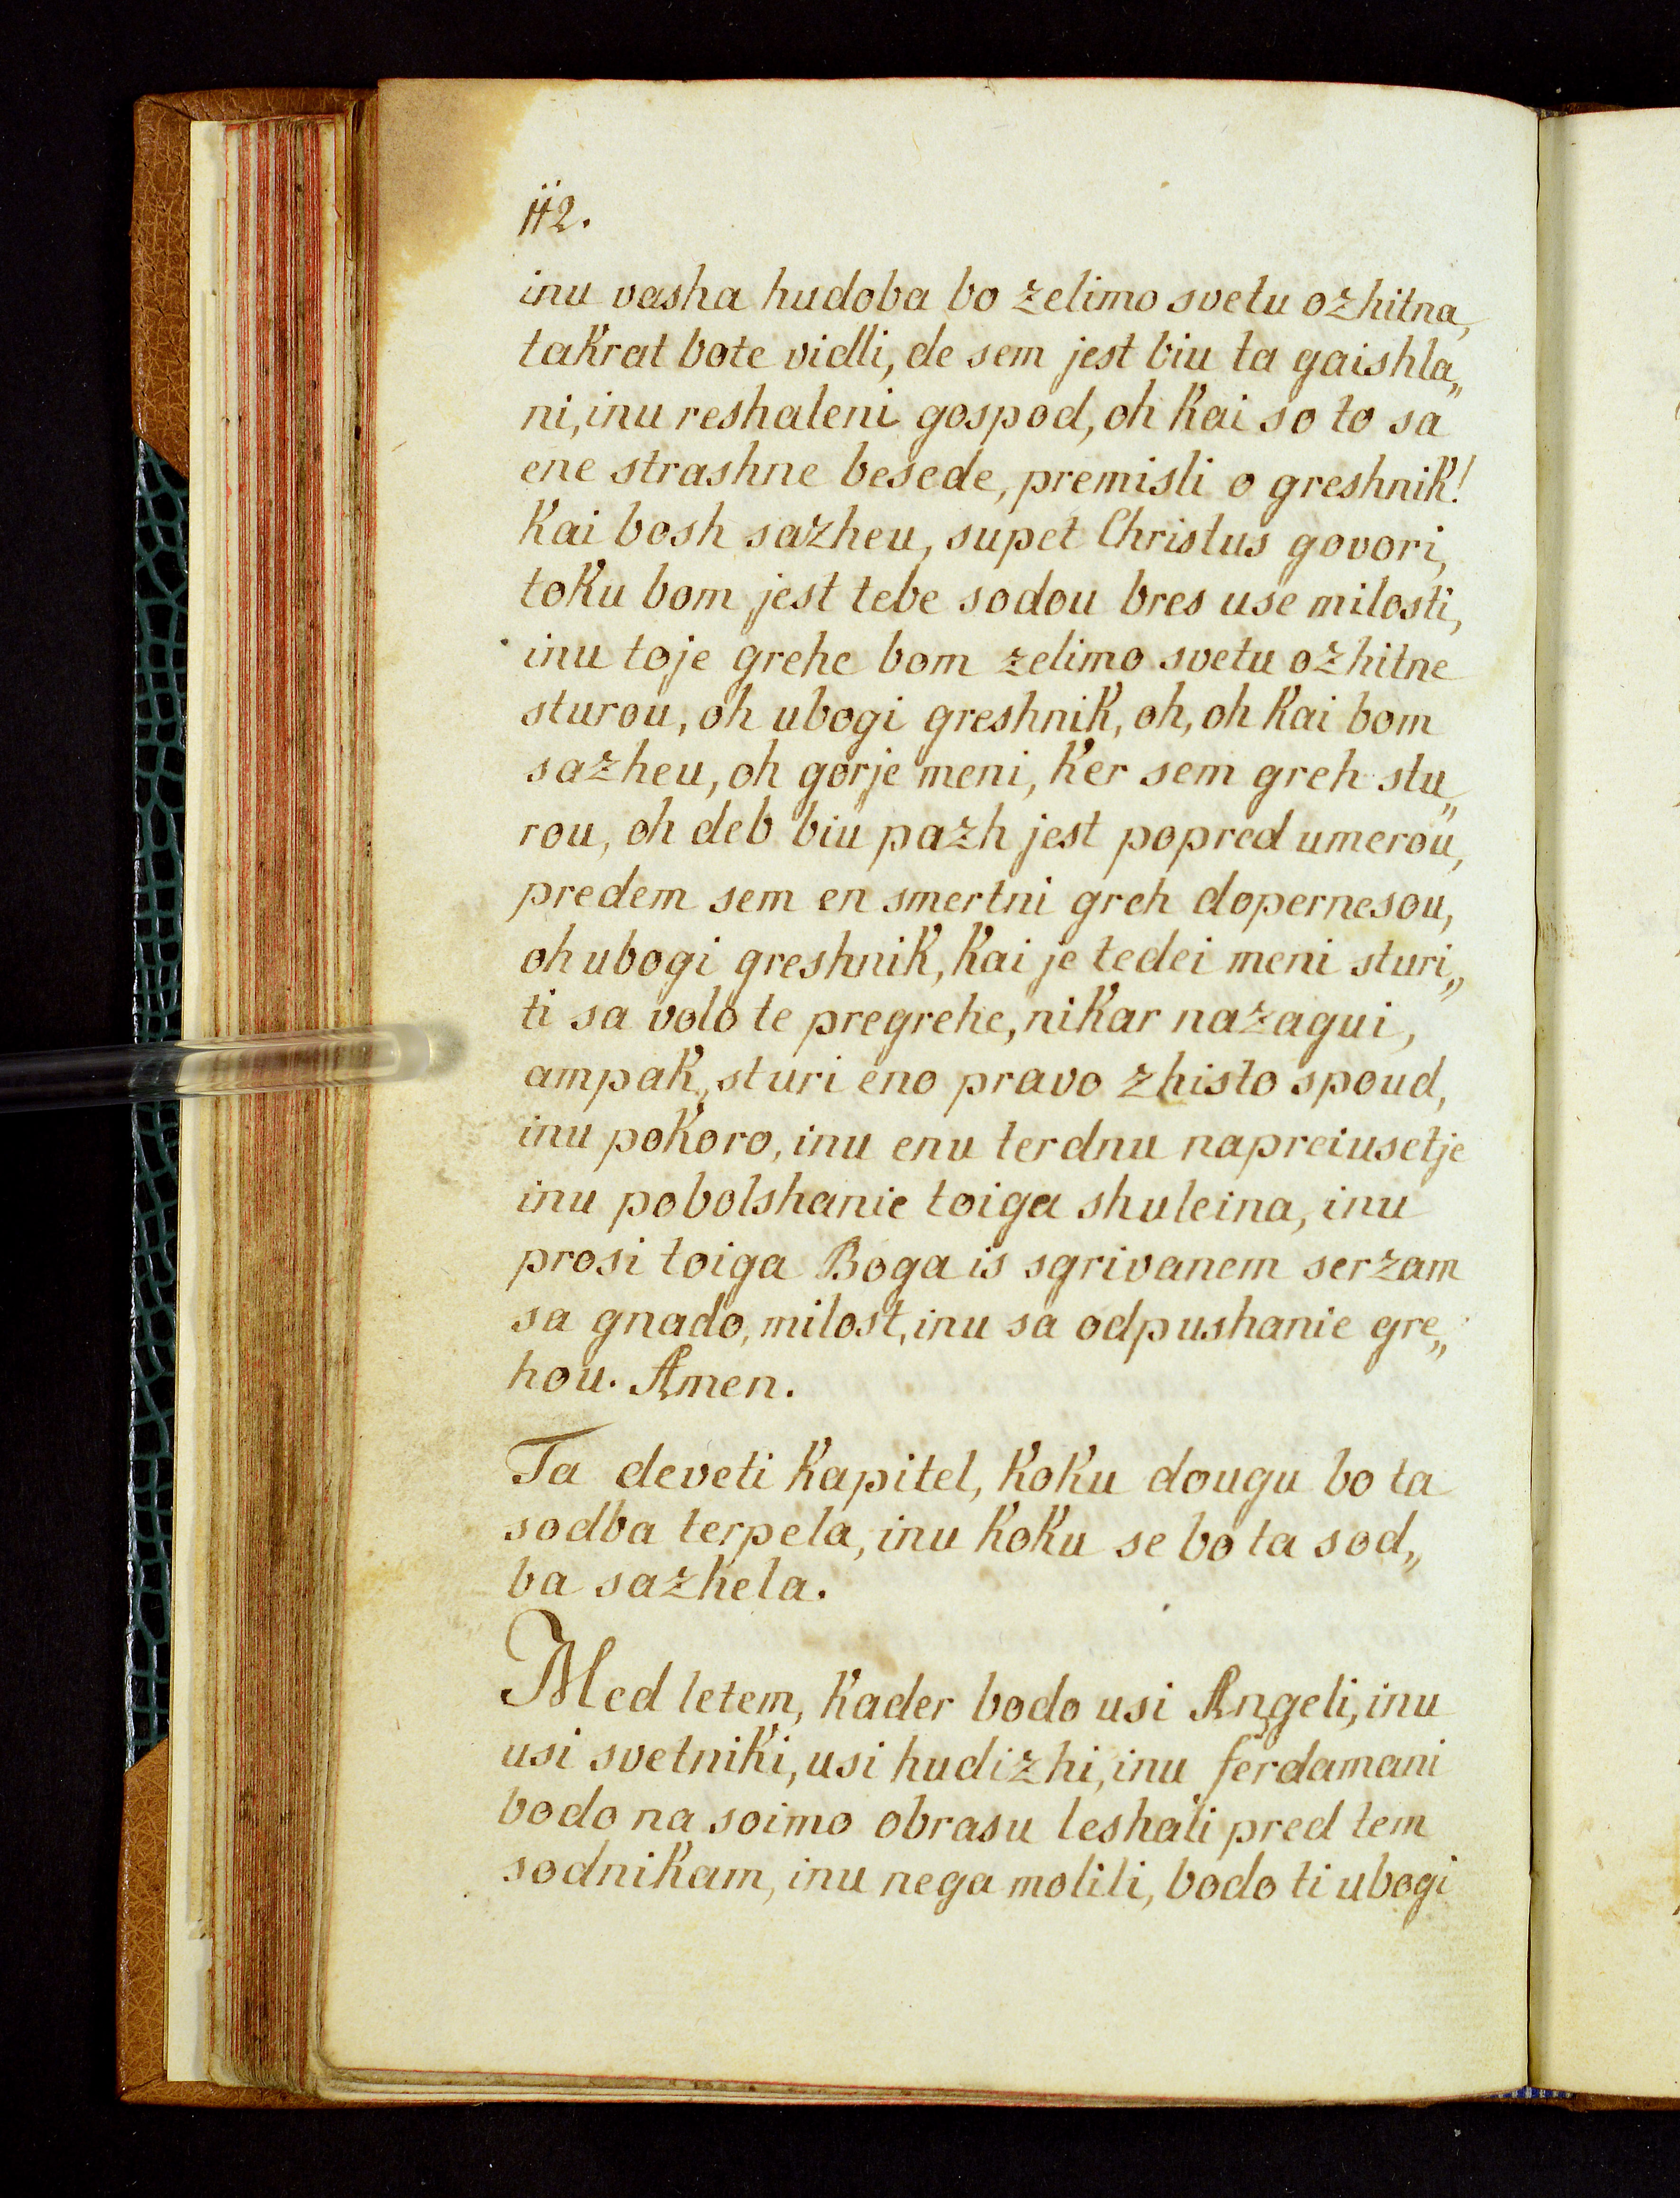 112.
inu vasha hudoba bo zelimo svetu ozhitna,
takrat bote vidli, de sem jest biu ta gaishla„
ni, inu reshaleni gospod, oh kai so to sa
ene strashne besede, premisli o greshnik!
kai bosh sazheu, supet Christus govori,
toku bom jest tebe sodou bres use milosti,
inu toje grehe bom zelimo svetu ozhitne
sturou, oh ubogi greshnik, oh, oh kai bom
sazheu, oh gorje meni, ker sem greh stu„
rou, oh deb biu pazh jest popred umerou,
predem sem en smertni greh dopernesou,
oh ubogi greshnik, kai je tedei meni sturi„
ti sa volo te pregrehe, nikar nazagui,
ampak, sturi eno pravo zhisto spoud,
inu pokoro, inu enu terdnu napreiusetje
inu pobolshanie toiga shuleina, inu
prosi toiga Boga is sgrivanem serzam
sa gnado, milost, inu sa odpushanie gre„
hou. Amen.
Ta deveti kapitel, koku dougu bo ta
sodba terpela, inu koku se bo ta sod„
ba sazhela.
Med letem, kader bodo usi Angeli, inu
usi svetniki, usi hudizhi, inu ferdamani
bodo na soimo obrasu leshali pred tem
sodnikam, inu nega molili, bodo ti ubogi